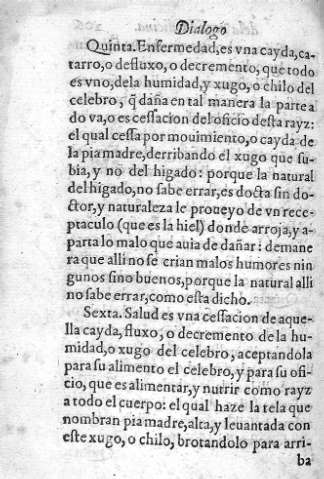 Dialogo
Quinta. Enfermedad, es vna cayda, ca-
tarro, o defluxo, o decremento, que todo
es vno, dela humidad, y xugo, o chilo del
celebro, q̃ daña en tal manera la parte a
do va, o es cessacion del oficio desta rayz:
el qual cessa por mouimiento, o cayda de
la piamadre, derribando el xugo que su-
bia, y no del higado: porque la natural
del higado, no sabe errar, es docta sin do-
ctor, y naturaleza le proueyo de vn rece-
ptaculo (que es la hiel) donde arroja, y a-
parta lo malo que auia de dañar: demane
ra que alli no se crian malos humores nin
gunos sino buenos, porque la natural alli
no sabe errar, como esta dicho.
Sexta. Salud es vna cessacion de aque-
lla cayda, fluxo, o decremento de la hu-
midad, o xugo del celebro, aceptandola
para su alimento el celebro, y para su ofi-
cio, que es alimentar, y nutrir como rayz
a todo el cuerpo: el qual haze la tela que
nombran piamadre, alta, y leuantada con
este xugo, o chilo, brotandolo para arri-
ba